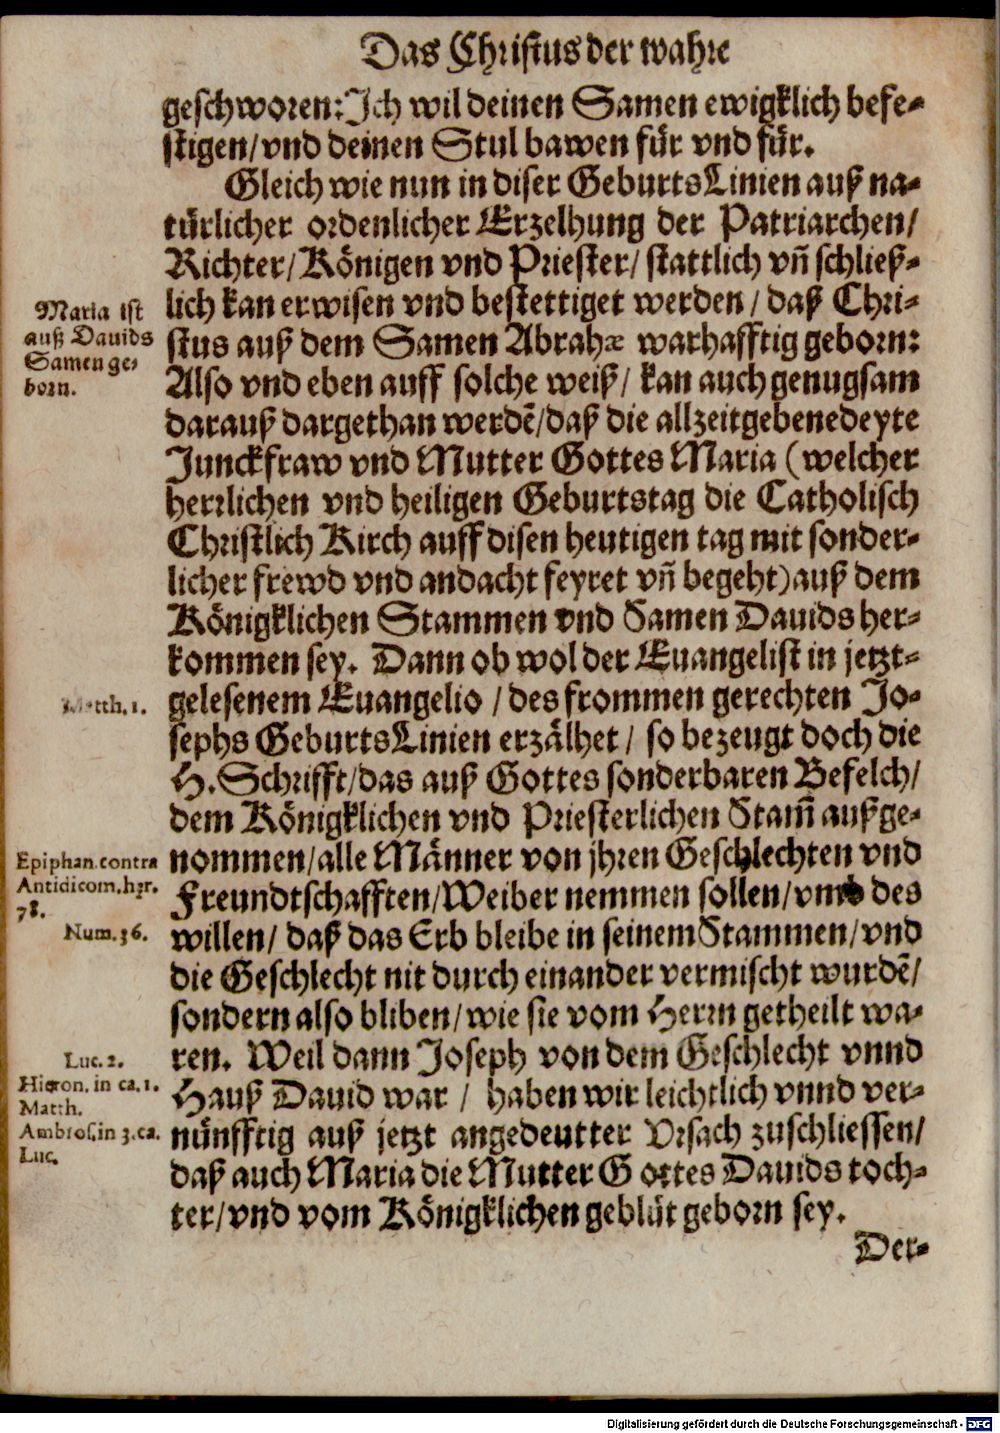 Das Christus der wahre
geschworen: Ich wil deinen Samen ewigklich befe-
stigen/ vnd deinen Stul bawen für vnd für.
Gleich wie nun in diser GeburtsLinien auß na-
türlicher ordenlicher Erzelhung der Patriarchen/
Richter/ Königen vnd Priester/ stattlich vñ schließ-
lich kan erwisen vnd bestettiget werden/ daß Chri-
stus auß dem Samen Abrahæ warhafftig geborn:
Also vnd eben auff solche weiß/ kan auch genugsam
darauß dargethan werdẽ/ daß die allzeitgebenedeyte
Junckfraw vnd Mutter Gottes Maria (welcher
herrlichen vnd heiligen Geburtstag die Catholisch
Christlich Kirch auff disen heutigen tag mit sonder-
licher frewd vnd andacht feyret vñ begeht) auß dem
Königklichen Stammen vnd Samen Dauids her-
kommen sey. Dann ob wol der Euangelist in jetzt-
gelesenem Euangelio/ des frommen gerechten Jo-
sephs GeburtsLinien erzälhet/ so bezeugt doch die
H. Schrifft/ das auß Gottes sonderbaren Befelch/
dem Königklichen vnd Priesterlichen Stam̃ außge-
nommen/ alle Männer von jhren Geschlechten vnd
Freundtschafften/ Weiber nemmen sollen/ vmb des
willen/ daß das Erb bleibe in seinem Stammen/ vnd
die Geschlecht nit durch einander vermischt wurdẽ/
sondern also bliben/ wie sie vom Herrn getheilt wa-
ren. Weil dann Joseph von dem Geschlecht vnnd
Hauß Dauid war/ haben wir leichtlich vnnd ver-
nünfftig auß jetzt angedeutter Vrsach zuschliessen/
daß auch Maria die Mutter Gottes Dauids toch-
ter/ vnd vom Königklichen geblüt geborn sey.
Der-
Maria ist
auß Dauids
Samen ge-
born.
Matth. 1.
Epiphan. contra
Antidicom. hær.
78.
Num. 36.
Luc. 2.
Hieron. in ca. 1.
Matth.
Ambros. in 3. ca.
Luc.
Digitalisierung gefördert durch die Deutsche Forschungsgemeinschaft - DFG